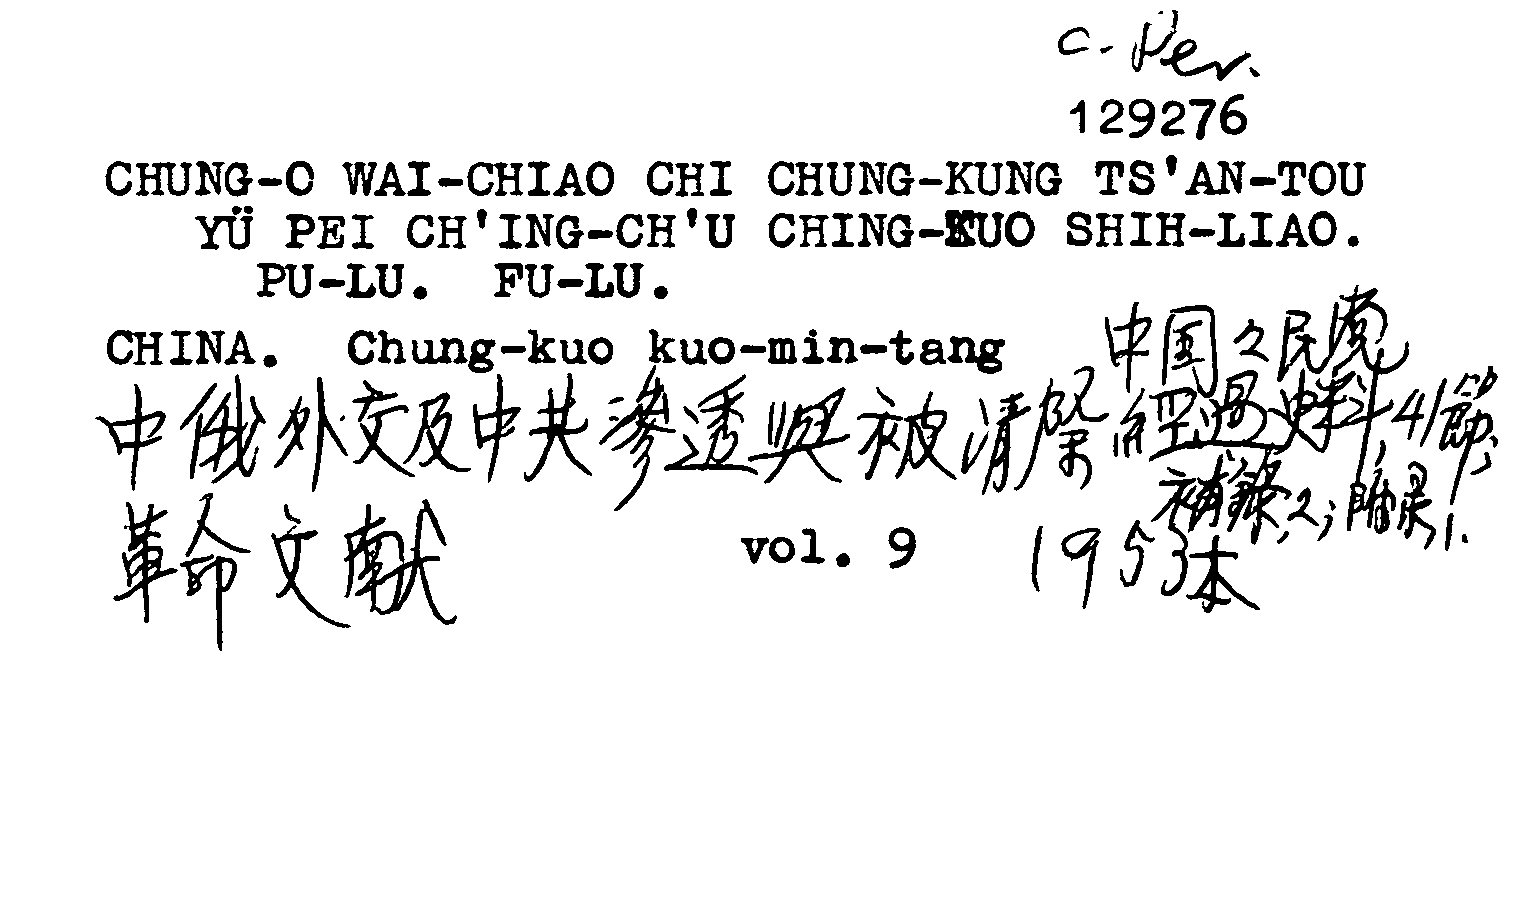 C. Per.
129276
CHUNG-O WAI-CHIAO CHI CHUNG-KUNG TS'AN-TOU
YÜ PEI CH'ING-CH'U CHING-KUO SHIH-LIAO.
PU-LU. FU-LU.
CHINA. Chung-kuo kuo-min-tang 中国々民党
中俄外交及中共滲透與被清除經過史料, 41節,
補錄, 2; 附录, 1.
革命文献 vol. 9 1953本